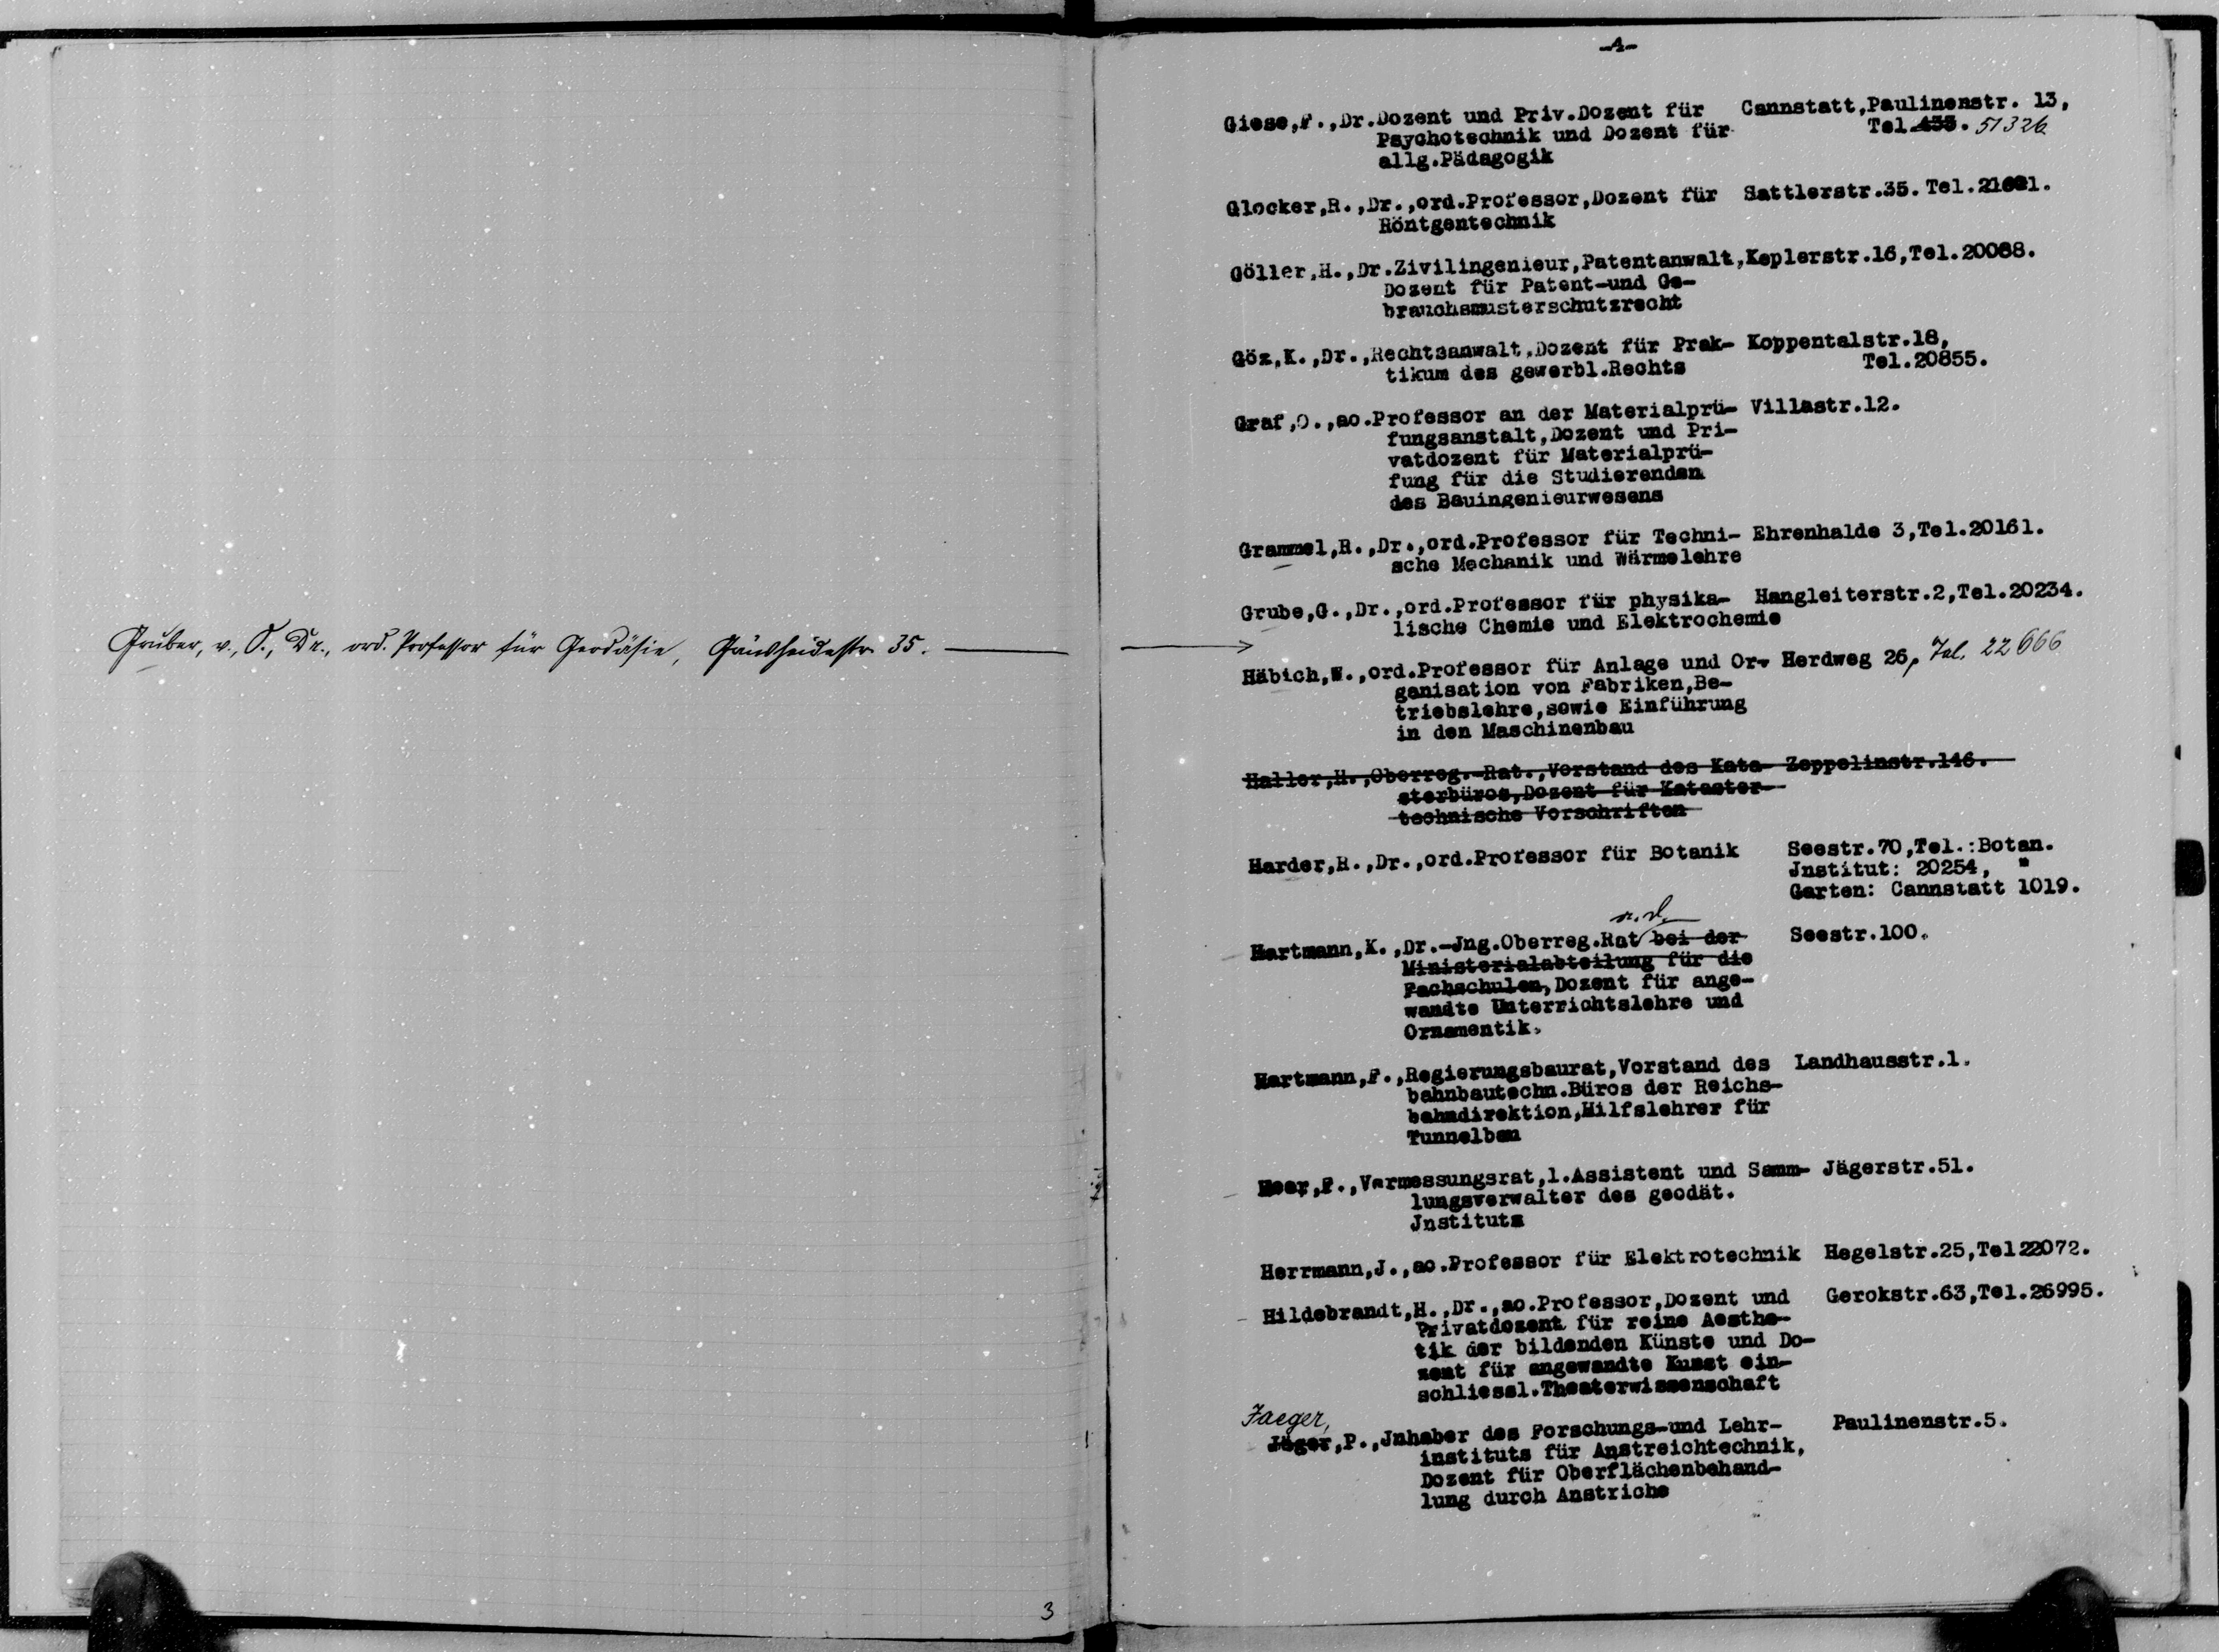 Gruber, v., O., Dr., ord. Professor für Geodäsie, Gänsheidestr. 35.
3
-4-
Giese,F.,Dr.Dozent und Priv.Dozent für Cannstatt,Paulinenstr. 13,
Psychotechnik und Dozent für Tel.433. 51326
allg.Pädagogik
Glocker,R.,Dr.,ord.Professor,Dozent für Sattlerstr.35.Tel.
Röntgentechnik
Göller,H.,Dr.Zivilingenieur,Patentanwalt,Keplerstr.16,Tel.20088.
Dozent für Patent-und Ge-
brauchsmusterschutzrecht
Göz,K.,Dr.,Rechtsanwalt,Dozent für Prak- Koppentalstr.18,
tikum des gewerbl.Rechts Tel.20855.
Graf,O.,ao.Professor an der Materialprü- Villastr.12.
fungsanstalt,Dozent und Pri-
vatdozent für Materialprü-
fung für die Studierenden
des Bauingenieurwesens
Grammel,R.,Dr.,ord.Professor für Techni- Ehrenhalde 3,Tel.20161.
sche Mechanik und Wärmelehre
Grube,G.,Dr.,ord.Professor für physika- Hangleiterstr.2,Tel.20234.
lische Chemie und Elektrochemie
Häbich,W.,ord.Professor für Anlage und Or- Herdweg 26, Tel. 22666
ganisation von Fabriken,Be-
triebslehre,sowie Einführung
in den Maschinenbau
Haller,H.,Oberreg.-Rat.,Vorstand des Kata- Zeppelinstr.146.
sterbüros,Dozent für Kataster-
technische Vorschriften
Harder,R.,Dr.,ord.Professor für Botanik Seestr.70,Tel.:Botan.
Jnstitut: 20254, "
Garten: Cannstatt 1019.
a.D.
Hartmann,K.,Dr.-Jng.Oberreg.Rat bei der Seestr.100.
Ministerialabteilung für die
Fachschulen,Dozent für ange-
wandte Unterrichtslehre und
Ornamentik.
Hartmann,F.,Regierungsbaurat,Vorstand des Landhausstr.1.
bahnbautechn.Büros der Reichs-
bahndirektion,Hilfslehrer für
Tunnelbau
Heer,F.,Vermessungsrat,1.Assistent und Samm- Jägerstr.51.
lungsverwalter des geodät.
Jnstituts
Herrmann,J.,ao.Professor für Elektrotechnik Hegelstr.25,Tel22072.
Hildebrandt,H.,Dr.,ao.Professor,Dozent und Gerokstr.63,Tel.26995.
Privatdozent für reine Aesthe-
tik der bildenden Künste und Do-
zent für angewandte Kunst ein-
schliessl.Theaterwissenschaft
Jaeger,
Jäger,P.,Jnhaber des Forschungs-und Lehr- Paulinenstr.5.
instituts für Anstreichtechnik,
Dozent für Oberflächenbehand-
lung durch Anstriche